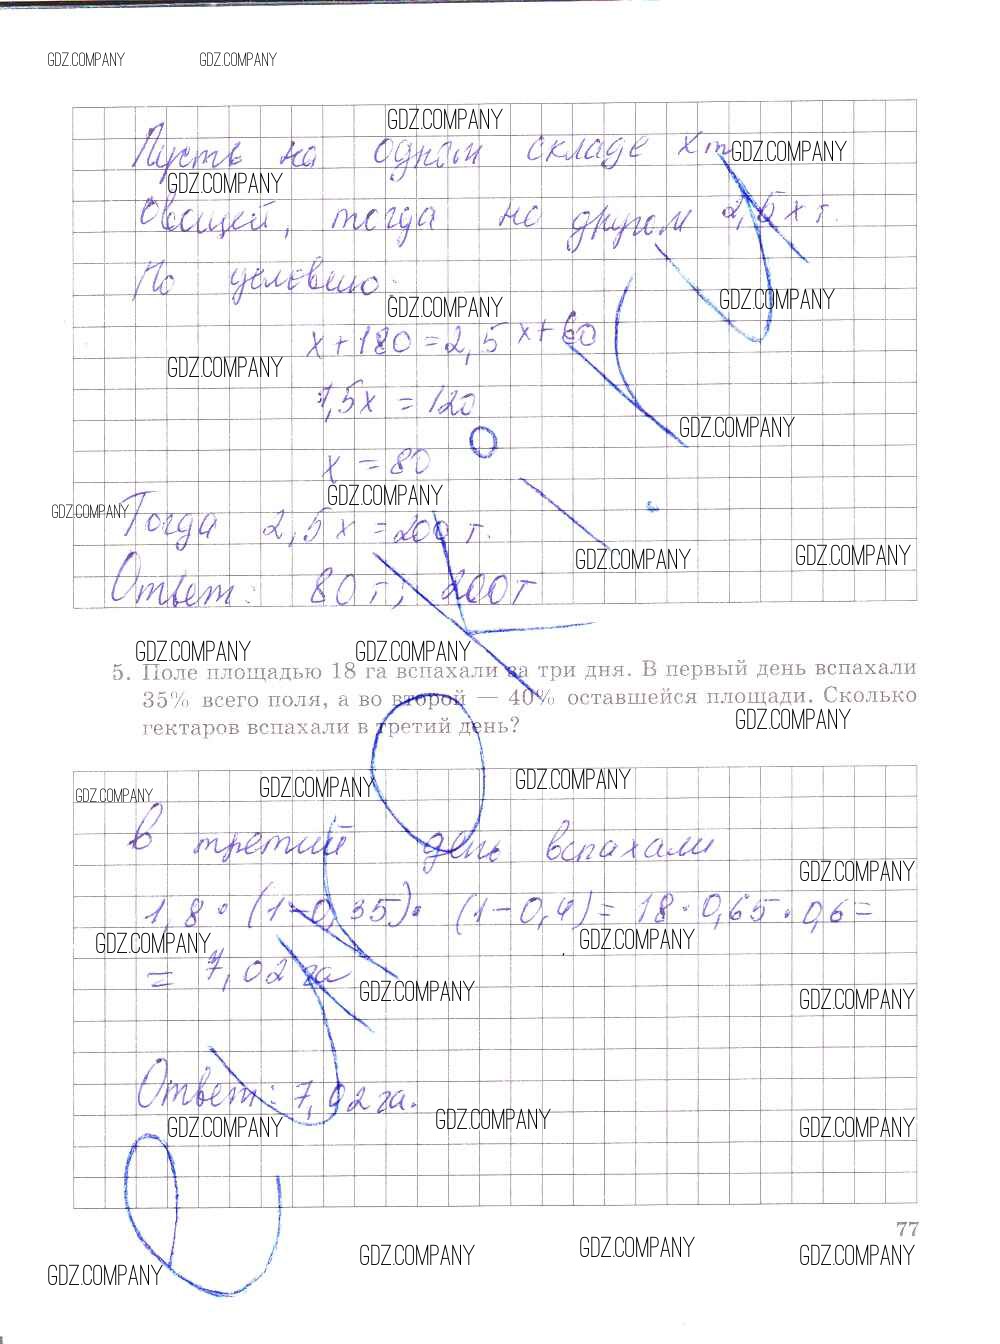 GDZ.COMPANY GDZ.COMPANY
GDZ.COMPANY
Пусть на одном складе x т GDZ.COMPANY
GDZ.COMPANY
Овощей, тогда на другом 2,5x т.
По условию:
GDZ.COMPANY GDZ.COMPANY
x + 180 = 2,5x + 60
GDZ.COMPANY
1,5x = 120
GDZ.COMPANY
x = 80
GDZ.COMPANY
GDZ.COMPANY
Тогда 2,5x = 200 т.
GDZ.COMPANY GDZ.COMPANY
Ответ: 80 т; 200 т
GDZ.COMPANY GDZ.COMPANY
5. Поле площадью 18 га вспахали за три дня. В первый день вспахали
35% всего поля, а во второй — 40% оставшейся площади. Сколько
гектаров вспахали в третий день?
GDZ.COMPANY
GDZ.COMPANY GDZ.COMPANY GDZ.COMPANY
В третий день вспахали
GDZ.COMPANY
1,8 · (1 - 0,35) · (1 - 0,4) = 18 · 0,65 · 0,6 =
GDZ.COMPANY GDZ.COMPANY
= 7,02 га
GDZ.COMPANY GDZ.COMPANY
Ответ: 7,02 га.
GDZ.COMPANY GDZ.COMPANY GDZ.COMPANY
77
GDZ.COMPANY GDZ.COMPANY GDZ.COMPANY GDZ.COMPANY